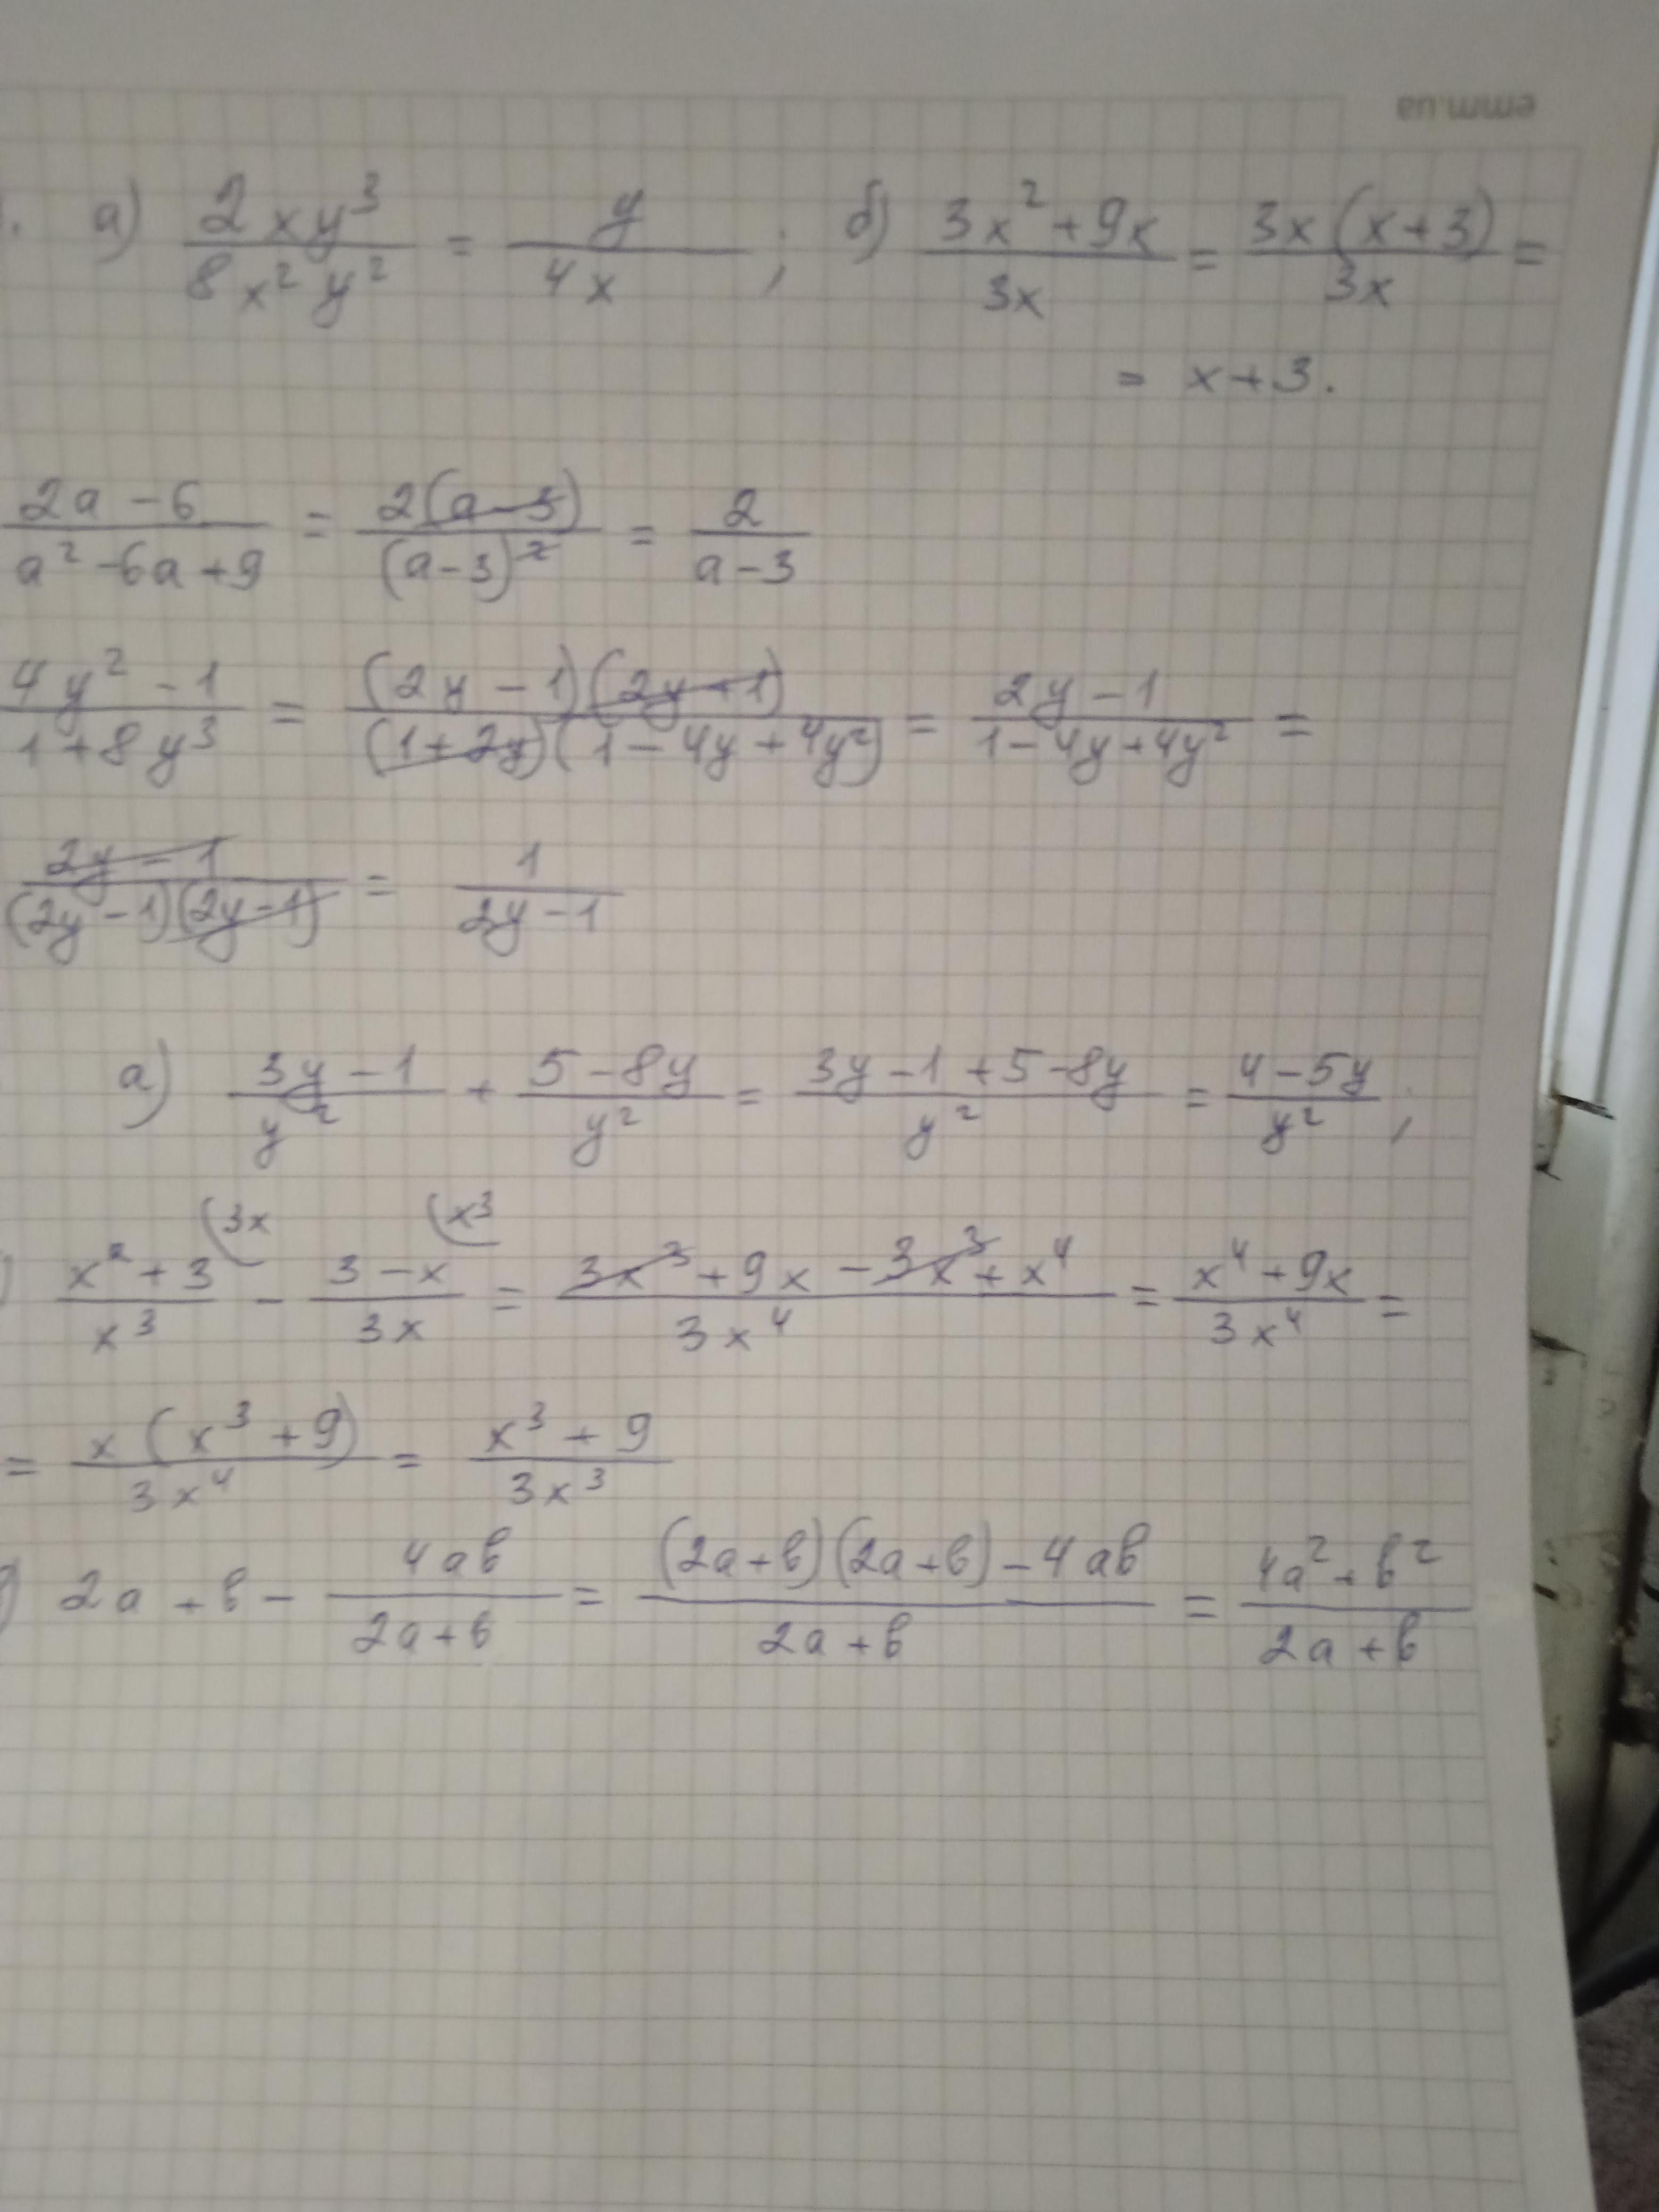 emm.ua
а) 2xy³/8x²y² = y/4x ; б) (3x² + 9x)/3x = 3x(x+3)/3x =
= x+3.
(2a − 6)/(a² − 6a + 9) = 2(a − 3)/(a − 3)² = 2/(a − 3)
(4y² − 1)/(1 + 8y³) = (2y − 1)(2y + 1)/(1 + 2y)(1 − 4y + 4y²) = (2y − 1)/(1 − 4y + 4y²) =
(2y − 1)/(2y − 1)(2y − 1) = 1/(2y − 1)
а) (3y − 1)/y² + (5 − 8y)/y² = (3y − 1 + 5 − 8y)/y² = (4 − 5y)/y² ;
(3x (x³
) (x² + 3)/x³ − (3 − x)/3x = (3x³ + 9x − 3x³ + x⁴)/3x⁴ = (x⁴ + 9x)/3x⁴ =
= x(x³ + 9)/3x⁴ = (x³ + 9)/3x³
) 2a + b − 4ab/(2a + b) = ((2a + b)(2a + b) − 4ab)/(2a + b) = (4a² + b²)/(2a + b)